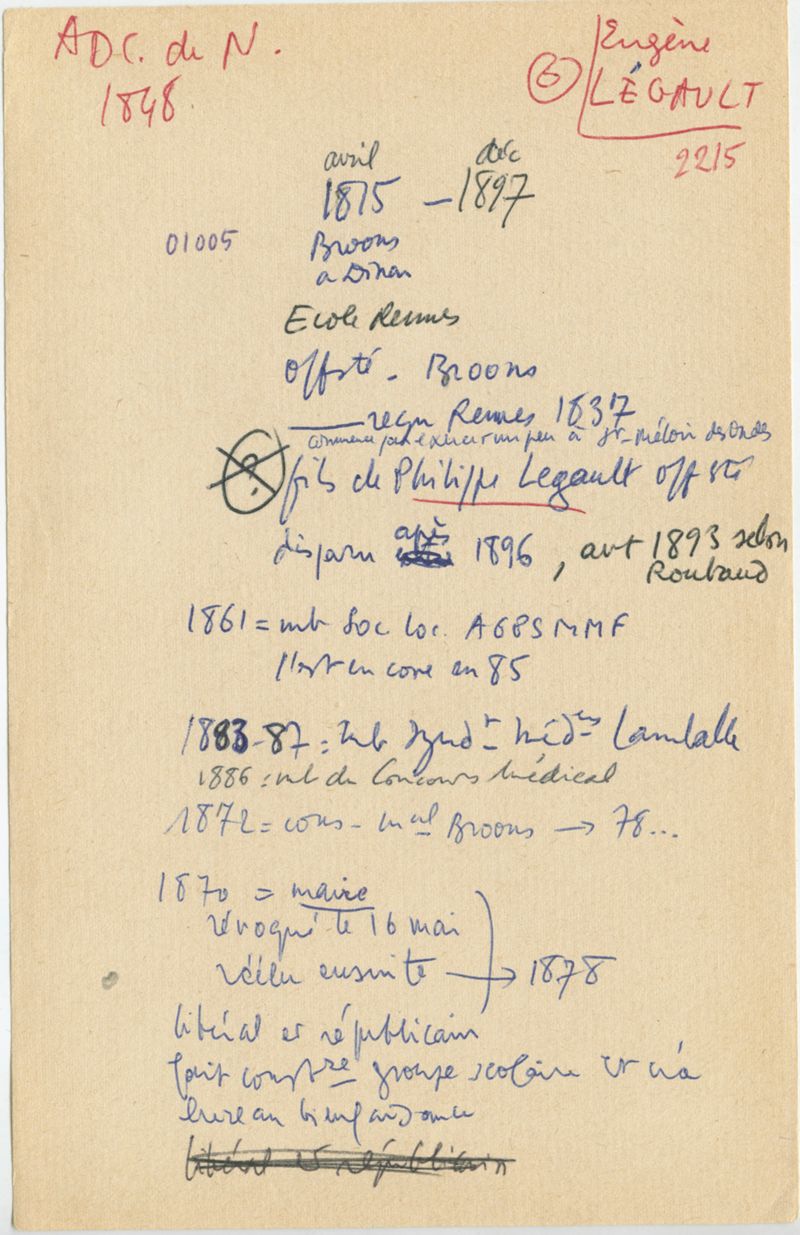 ADC. de N.
1848
Eugène
⑥ LÉGAULT
2215
avril déc
1815 – 1897
01005 Broons
a Dinan
Ecole Rennes
offsté - Broons
—— reçu Rennes 1837
commence par exercer un peu à St-Méloir des Ondes
? fils de Philippe Legault offsté
disparu après 1896, avt 1893 selon
Roubaud
1861 = mb Soc loc. AGPSMMF
l'est encore en 85
1883-87 = mb Syndt Médes Lamballe
1886 : mb du Concours Médical
1872 = cons - mal Broons → 78...
1870 = maire
révoqué le 16 mai
réélu ensuite → 1878
libéral et républicain
fait constre groupe scolaire et créa
bureau bienfaisance
libéral et républicain